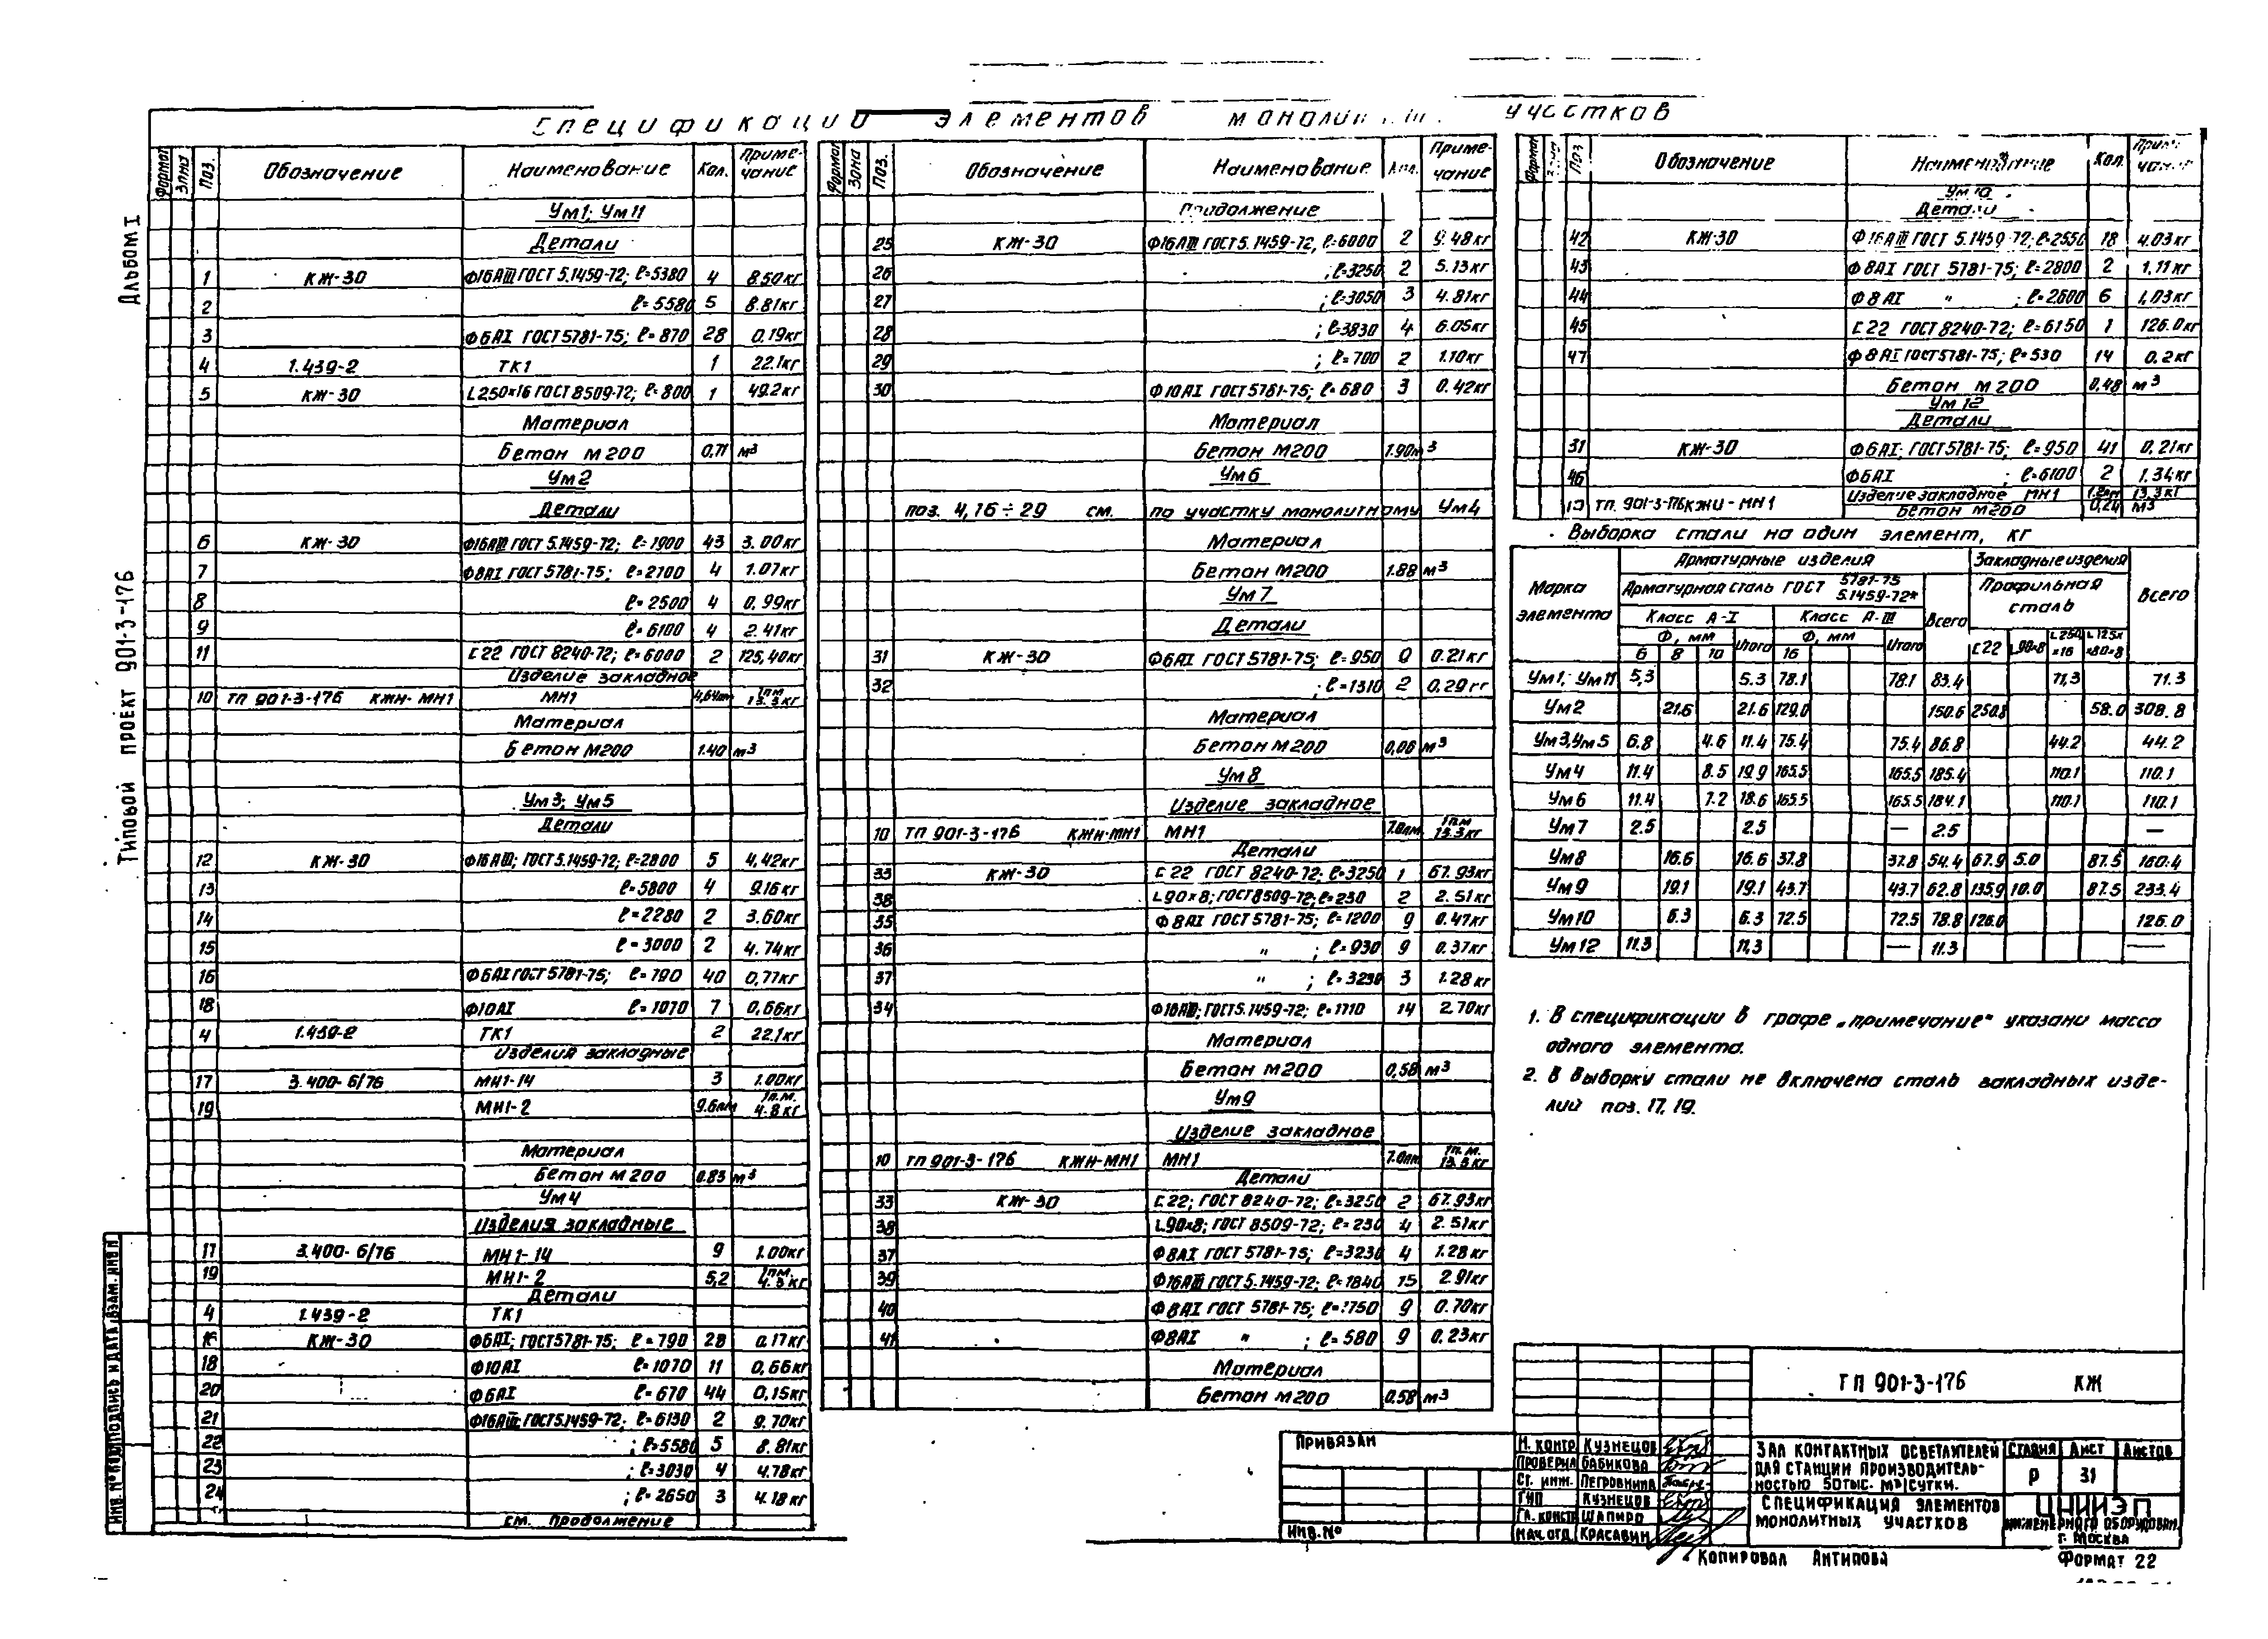 Спецификации элементов участков
Альбом I
Типовой проект 901-3-176
Формат Зона Поз. Обозначение Наименование Кол. Примечание
Ум1; Ум11
Детали
1 КЖ-30 Ф16АIII ГОСТ 5.1459-72; ℓ=5380 4 8.50кг
2 ℓ=5580 5 8.81кг
3 Ф6АI ГОСТ 5781-75; ℓ=870 28 0.19кг
4 1.439-2 ТК1 1 22.1кг
5 КЖ-30 L250×16 ГОСТ 8509-72; ℓ=800 1 49.2кг
Материал
Бетон М200 0,71 м³
Ум2
Детали
6 КЖ-30 Ф16АIII ГОСТ 5.1459-72; ℓ=1900 43 3.00кг
7 Ф8АI ГОСТ 5781-75; ℓ=2700 4 1.07кг
8 ℓ=2500 4 0,99кг
9 ℓ=6100 4 2.41кг
11 С22 ГОСТ 8240-72; ℓ=6000 2 125,40кг
Изделие закладное
10 ТП 901-3-176 КЖИ-МН1 МН1 4,64пм 1пм 13.3кг
Материал
Бетон М200 1.40 м³
Ум3; Ум5
Детали
12 КЖ-30 Ф16АIII; ГОСТ 5.1459-72; ℓ=2800 5 4,42кг
13 ℓ=5800 4 9.16кг
14 ℓ=2280 2 3.60кг
15 ℓ=3000 2 4.74кг
16 Ф6АI ГОСТ 5781-75; ℓ=790 40 0,17кг
18 Ф10АI ℓ=1070 7 0,66кг
4 1.439-2 ТК1 2 22.1кг
Изделия закладные
17 3.400-6/76 МН1-14 3 1.00кг
19 МН1-2 9.6пм 1п.м. 4.8кг
Материал
Бетон М200 0.83 м³
Ум4
Изделия закладные
17 3.400-6/76 МН1-14 9 1.00кг
19 МН1-2 5,2 1пм. 4.8кг
Детали
4 1.439-2 ТК1
16 КЖ-30 Ф6АI; ГОСТ 5781-75; ℓ=790 28 0.17кг
18 Ф10АI ℓ=1070 11 0,66кг
20 Ф6АI ℓ=670 44 0,15кг
21 Ф16АIII ГОСТ 5.1459-72; ℓ=6130 2 9.70кг
22 ; ℓ=5580 5 8.81кг
23 ; ℓ=3030 4 4.78кг
24 ; ℓ=2650 3 4.18кг
см. продолжение
Формат Зона Поз. Обозначение Наименование Кол. Примечание
Продолжение
25 КЖ-30 Ф16АIII ГОСТ 5.1459-72, ℓ=6000 2 9.48кг
26 ; ℓ=3250 2 5.13кг
27 ; ℓ=3050 3 4.81кг
28 ; ℓ=3830 4 6.05кг
29 ; ℓ=700 2 1.10кг
30 Ф10АI ГОСТ 5781-75; ℓ=680 3 0.42кг
Материал
Бетон М200 1.90м³
Ум6
поз. 4,16÷29 см. по участку монолитному Ум4
Материал
Бетон М200 1.88 м³
Ум7
Детали
31 КЖ-30 Ф6АI ГОСТ 5781-75; ℓ=950 9 0.21кг
32 ; ℓ=1310 2 0,29кг
Материал
Бетон М200 0,06 м³
Ум8
Изделие закладное
10 ТП 901-3-176 КЖИ-МН1 МН1 7.0пм. 1пм 13.3кг
Детали
33 КЖ-30 С22 ГОСТ 8240-72; ℓ=3250 1 67.93кг
38 L90×8; ГОСТ 8509-72; ℓ=230 2 2.51кг
35 Ф8АI ГОСТ 5781-75; ℓ=1200 9 0.47кг
36 " ; ℓ=930 9 0.37кг
37 " ; ℓ=3230 3 1.28кг
34 Ф16АIII; ГОСТ 5.1459-72; ℓ=1710 14 2.70кг
Материал
Бетон М200 0,58 м³
Ум9
Изделие закладное
10 ТП 901-3-176 КЖИ-МН1 МН1 7.0пм 1п.м. 13.3кг
Детали
33 КЖ-30 С22; ГОСТ 8240-72; ℓ=3250 2 67.93кг
38 L90×8; ГОСТ 8509-72; ℓ=230 4 2.51кг
37 Ф8АI ГОСТ 5781-75; ℓ=3230 4 1.28кг
39 Ф16АIII ГОСТ 5.1459-72; ℓ=1840 15 2.91кг
40 Ф8АI ГОСТ 5781-75; 9 0.70кг
41 Ф8АI " ; ℓ=580 9 0.23кг
Материал
Бетон М200 0.58 м³
Поз Обозначение Наименование Кол.
Ум 10
Детали
42 КЖ-30 Ф16АIII ГОСТ 5.1459-72; ℓ=2550 18 4.03кг
43 Ф8АI ГОСТ 5781-75; ℓ=2800 2 1,11кг
44 Ф8АI " ; ℓ=2600 6 1,03кг
45 С22 ГОСТ 8240-72; ℓ=6150 1 126.0кг
47 Ф8АI ГОСТ 5781-75; ℓ=530 14 0.2кг
Бетон М200 0,48 м³
Ум 12
Детали
31 КЖ-30 Ф6АI; ГОСТ 5781-75; ℓ=950 41 0,21кг
46 Ф6АI ; ℓ=6100 2 1.34кг
10 ТП 901-3-176КЖИ-МН1 Изделие закладное МН1 1.2пм 13.3кг
Бетон М200 0,24 м³
Выборка стали на один элемент, кг
Марка элемента Арматурные изделия Закладные изделия Всего
Арматурная сталь ГОСТ 5781-75 5.1459-72* Всего Профильная сталь
Класс А-I Класс А-III
Ф, мм Итого Ф, мм Итого С22 L90×8 L250×16 L125×80×8
6 8 10 16
Ум1; Ум11 5,3 5.3 78.1 78.1 83.4 71,3 71.3
Ум2 21.6 21.6 129.0 150.6 250.8 58.0 308.8
Ум3,Ум5 6.8 4.6 11.4 75.4 75.4 86.8 44.2 44.2
Ум4 11.4 8.5 19.9 165.5 165.5 185.4 110.1 110.1
Ум6 11.4 7.2 18.6 165.5 165.5 184.1 110.1 110.1
Ум7 2.5 2.5 — 2.5 —
Ум8 16.6 16.6 37.8 37.8 54.4 67.9 5.0 87.5 160.4
Ум9 19.1 19.1 43.7 43.7 62.8 135.9 10.0 87.5 233.4
Ум10 6.3 6.3 72.5 72.5 78.8 126.0 126.0
Ум12 11.3 11,3 — 11.3 —
1. В спецификации в графе „примечание" указана масса
одного элемента.
2. В выборку стали не включена сталь закладных изде-
лий поз. 17, 19.
Привязан
Инв.№
ТП 901-3-176 КЖ
Н. контр Кузнецов
Проверил Бабикова
Ст. инж. Петровнина
ГИП Кузнецов
Гл. констр Шапиро
Нач. отд. Красавин
Зал контактных осветлителей
для станции производитель-
ностью 50 тыс. м³/сутки.
Стадия Лист Листов
Р 31
Спецификация элементов
монолитных участков
ЦНИИЭП
инженерного оборудован.
г. Москва
Копировал Антипова Формат 22
Инв. № подл. Подпись и дата Взам. инв №